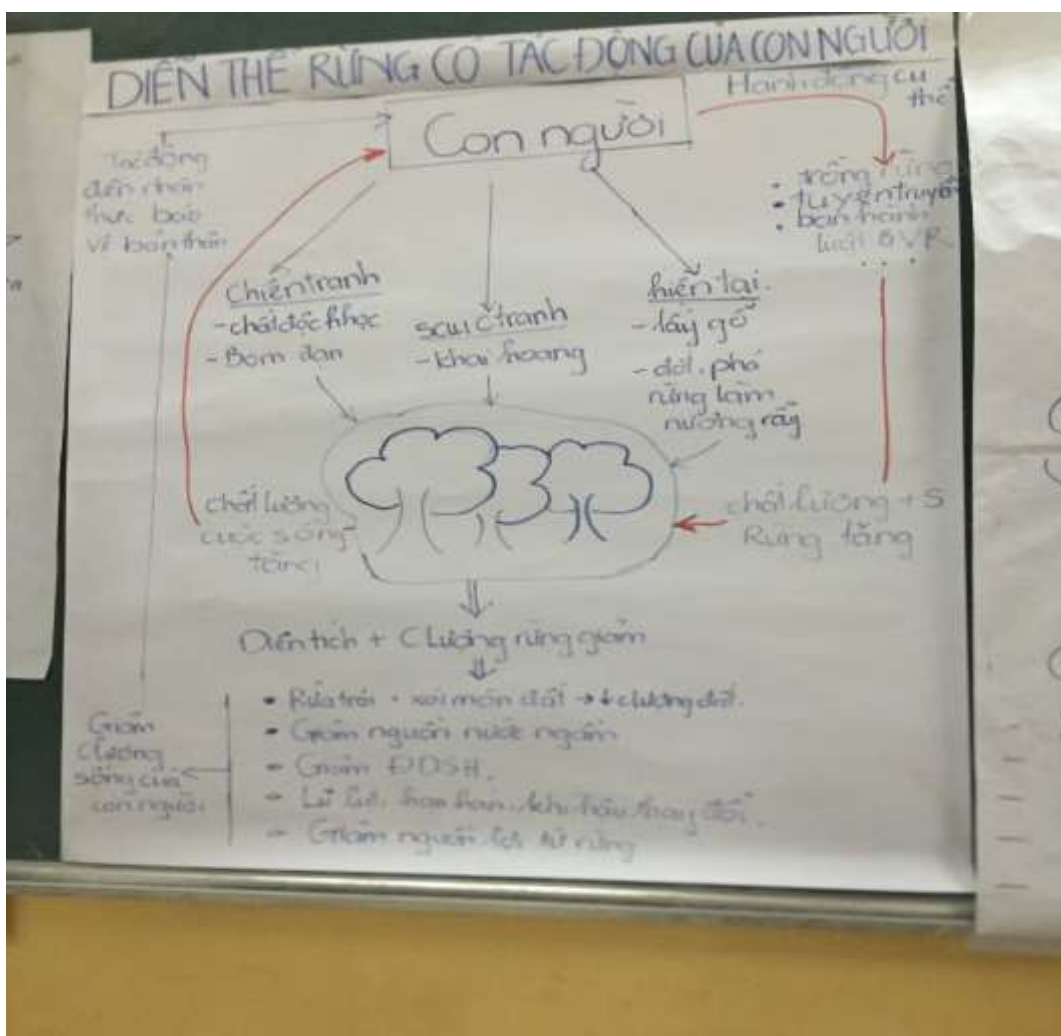 DIỄN THẾ RỪNG CÓ TÁC ĐỘNG CỦA CON NGƯỜI
Con người
Hành động cụ
thể
Tác động
đến nhận
thức bảo
vệ bản thân
. trồng rừng
. tuyên truyền
. ban hành
luật BVR
. . .
Chiến tranh
- chất độc hhọc
- Bom đạn
sau ctranh
- khai hoang
hiện tại.
- lấy gỗ
- đốt, phá
rừng làm
nương rẫy
chất lượng
cuộc sống
tăng
chất lượng + S
Rừng tăng
Diện tích + C lượng rừng giảm
• Rửa trôi - xói mòn đất → ↓ clượng đất.
- Giảm nguồn nước ngầm
- Giảm ĐDSH.
- Lũ lụt, hạn hán, khí hậu thay đổi.
- Giảm nguồn lợi từ rừng
Giảm
clượng
sống của
con người